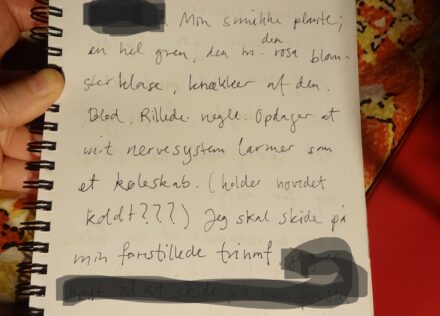 . Min smukke plante;
en hel gren, den m. den rosa blom-
sterklase, knækker af den.
Blod. Rillede negle. Opdager at
mit nervesystem larmer som
et køleskab. (holder hovedet
koldt???) Jeg skal skide på
min forestillede triumf
nødt til at skide på min